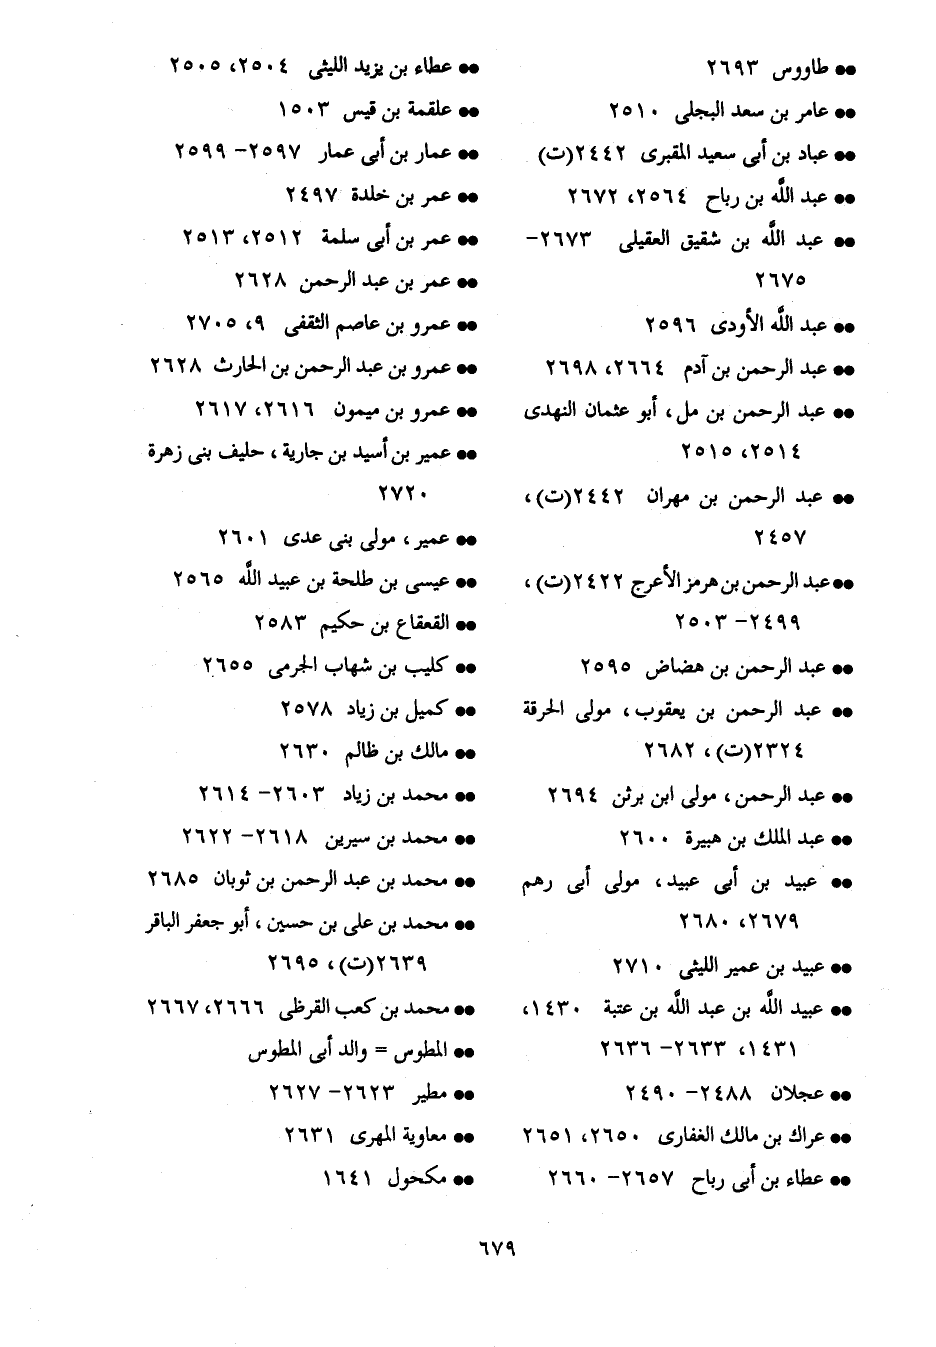 ●● طاووس ٢٦٩٣
●● عامر بن سعد البجلى ٢٥١٠
●● عباد بن أبى سعيد المقبرى ٢٤٤٢(ت)
●● عبد اللَّه بن رباح ٢٥٦٤، ٢٦٧٢
●● عبد اللَّه بن شقيق العقيلى ٢٦٧٣-
٢٦٧٥
●● عبد اللَّه الأودى ٢٥٩٦
●● عبد الرحمن بن آدم ٢٦٦٤، ٢٦٩٨
●● عبد الرحمن بن مل، أبو عثمان النهدى
٢٥١٤، ٢٥١٥
●● عبد الرحمن بن مهران ٢٤٤٢(ت)،
٢٤٥٧
●● عبد الرحمن بن هرمز الأعرج ٢٤٢٢(ت)،
٢٤٩٩- ٢٥٠٣
●● عبد الرحمن بن هضاض ٢٥٩٥
●● عبد الرحمن بن يعقوب، مولى الحرقة
٢٣٢٤(ت)، ٢٦٨٢
●● عبد الرحمن، مولى ابن برثن ٢٦٩٤
●● عبد الملك بن هبيرة ٢٦٠٠
●● عبيد بن أبى عبيد، مولى أبى رهم
٢٦٧٩، ٢٦٨٠
●● عبيد بن عمير الليثى ٢٧١٠
●● عبيد اللَّه بن عبد اللَّه بن عتبة ١٤٣٠،
١٤٣١، ٢٦٣٣- ٢٦٣٦
●● عجلان ٢٤٨٨- ٢٤٩٠
●● عراك بن مالك الغفارى ٢٦٥٠، ٢٦٥١
●● عطاء بن أبى رباح ٢٦٥٧- ٢٦٦٠
●● عطاء بن يزيد الليثى ٢٥٠٤، ٢٥٠٥
●● علقمة بن قيس ١٥٠٣
●● عمار بن أبى عمار ٢٥٩٧- ٢٥٩٩
●● عمر بن خلدة ٢٤٩٧
●● عمر بن أبى سلمة ٢٥١٢، ٢٥١٣
●● عمر بن عبد الرحمن ٢٦٢٨
●● عمرو بن عاصم الثقفى ٩، ٢٧٠٥
●● عمرو بن عبد الرحمن بن الحارث ٢٦٢٨
●● عمرو بن ميمون ٢٦١٦، ٢٦١٧
●● عمير بن أسيد بن جارية، حليف بنى زهرة
٢٧٢٠
●● عمير، مولى بنى عدى ٢٦٠١
●● عيسى بن طلحة بن عبيد اللَّه ٢٥٦٥
●● القعقاع بن حكيم ٢٥٨٣
●● كليب بن شهاب الجرمى ٢٦٥٥
●● كميل بن زياد ٢٥٧٨
●● مالك بن ظالم ٢٦٣٠
●● محمد بن زياد ٢٦٠٣- ٢٦١٤
●● محمد بن سيرين ٢٦١٨- ٢٦٢٢
●● محمد بن عبد الرحمن بن ثوبان ٢٦٨٥
●● محمد بن على بن حسين، أبو جعفر الباقر
٢٦٣٩(ت)، ٢٦٩٥
●● محمد بن كعب القرظى ٢٦٦٦، ٢٦٦٧
●● المطوس = والد أبى المطوس
●● مطير ٢٦٢٣- ٢٦٢٧
●● معاوية المهرى ٢٦٣١
●● مكحول ١٦٤١
٦٧٩